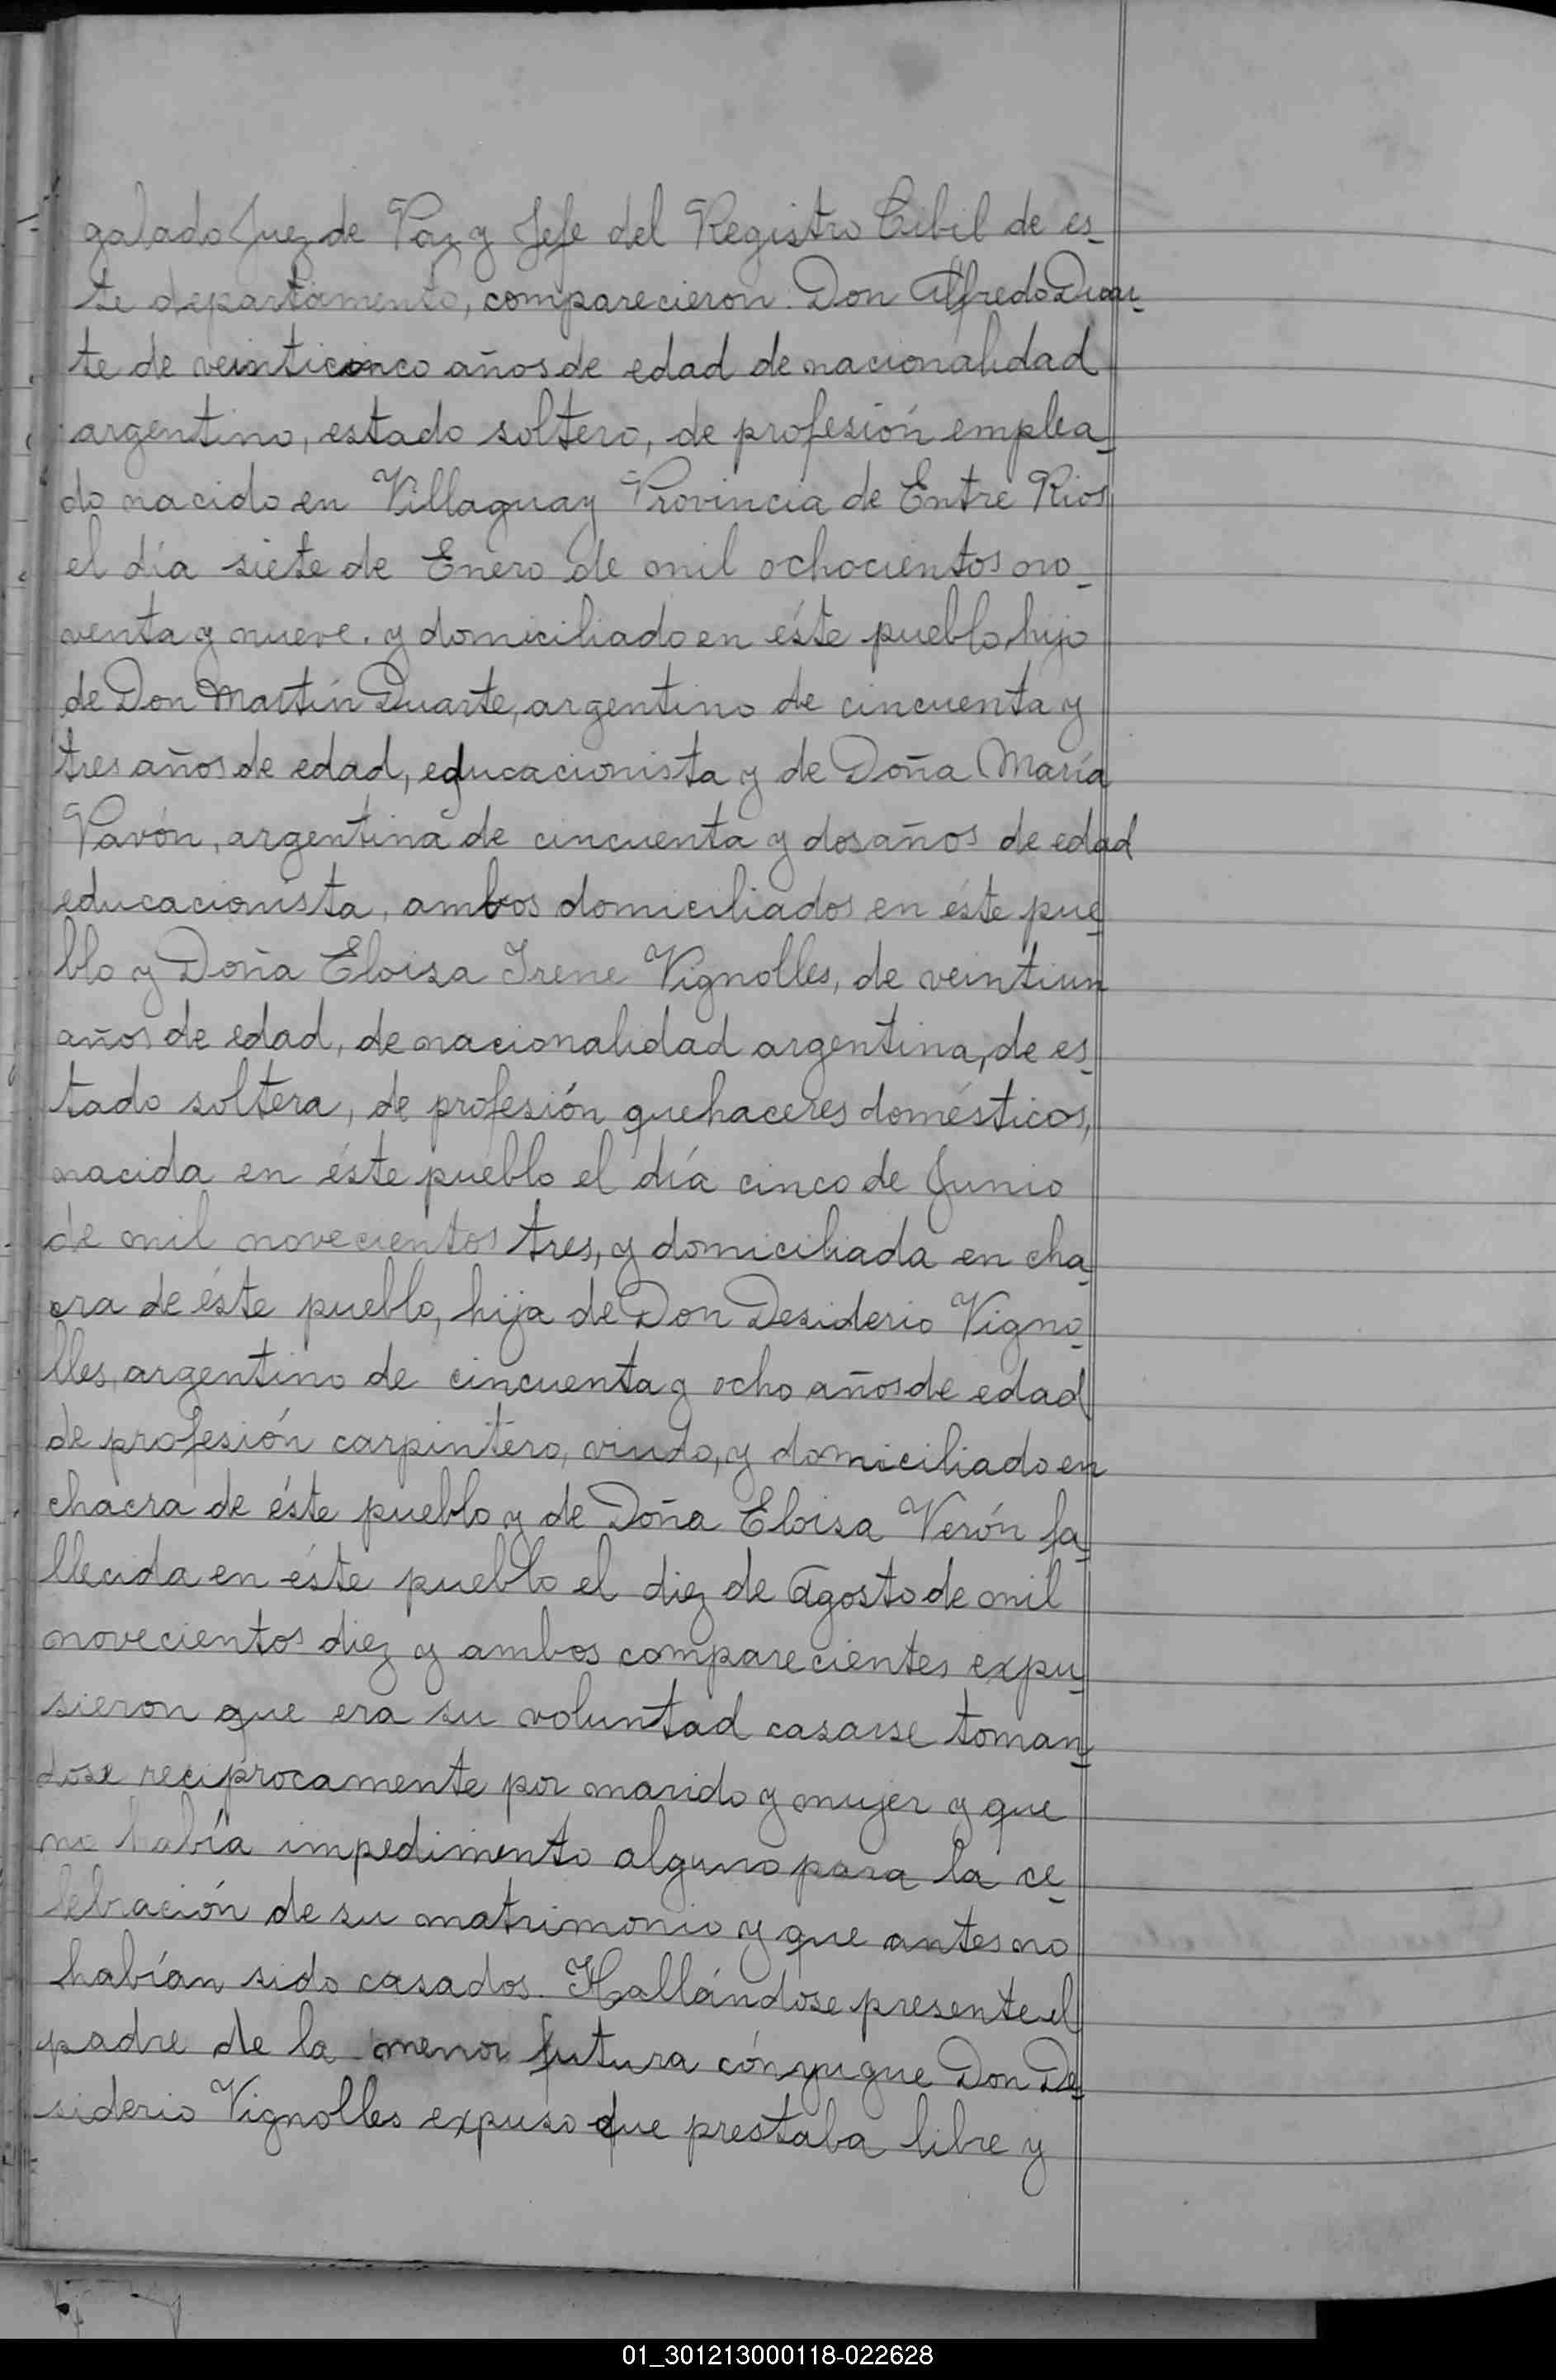 galado Juez de Paz y Jefe del Registro Cibil de es-
te departamento, comparecieron. Don Alfredo Duar-
te de veinticinco años de edad de nacionalidad
argentino, estado soltero, de profesión emplea-
do nacido en Villaguay Provincia de Entre Rios
el día siete de Enero de mil ochocientos no-
venta y nueve. y domiciliado en éste pueblo, hijo
de Don Martín Duarte, argentino de cincuenta y
tres años de edad, educacionista y de Doña María
Pavón, argentina de cincuenta y dos años de edad
educacionista, ambos domiciliados en éste pue-
blo y Doña Eloisa Irene Vignolles, de veintiun
años de edad, de nacionalidad argentina, de es-
tado soltera, de profesión quehaceres domésticos,
nacida en éste pueblo el día cinco de Junio
de mil novecientos tres, y domiciliada en cha-
cra de éste pueblo, hija de Don Desiderio Vigno-
lles, argentino de cincuenta y ocho años de edad
de profesión carpintero, viudo, y domiciliado en
chacra de éste pueblo y de Doña Eloisa Verón fa-
llecida en éste pueblo el diez de Agosto de mil
novecientos diez y ambos comparecientes expu-
sieron que era su voluntad casarse toman-
dose reciprocamente por marido y mujer y que
no había impedimento alguno para la ce-
lebración de su matrimonio y que antes no
habían sido casados. Hallándose presente el
padre de la menor futura cónyugue Don De-
siderio Vignolles expuso que prestaba libre y
01_301213000118-022628